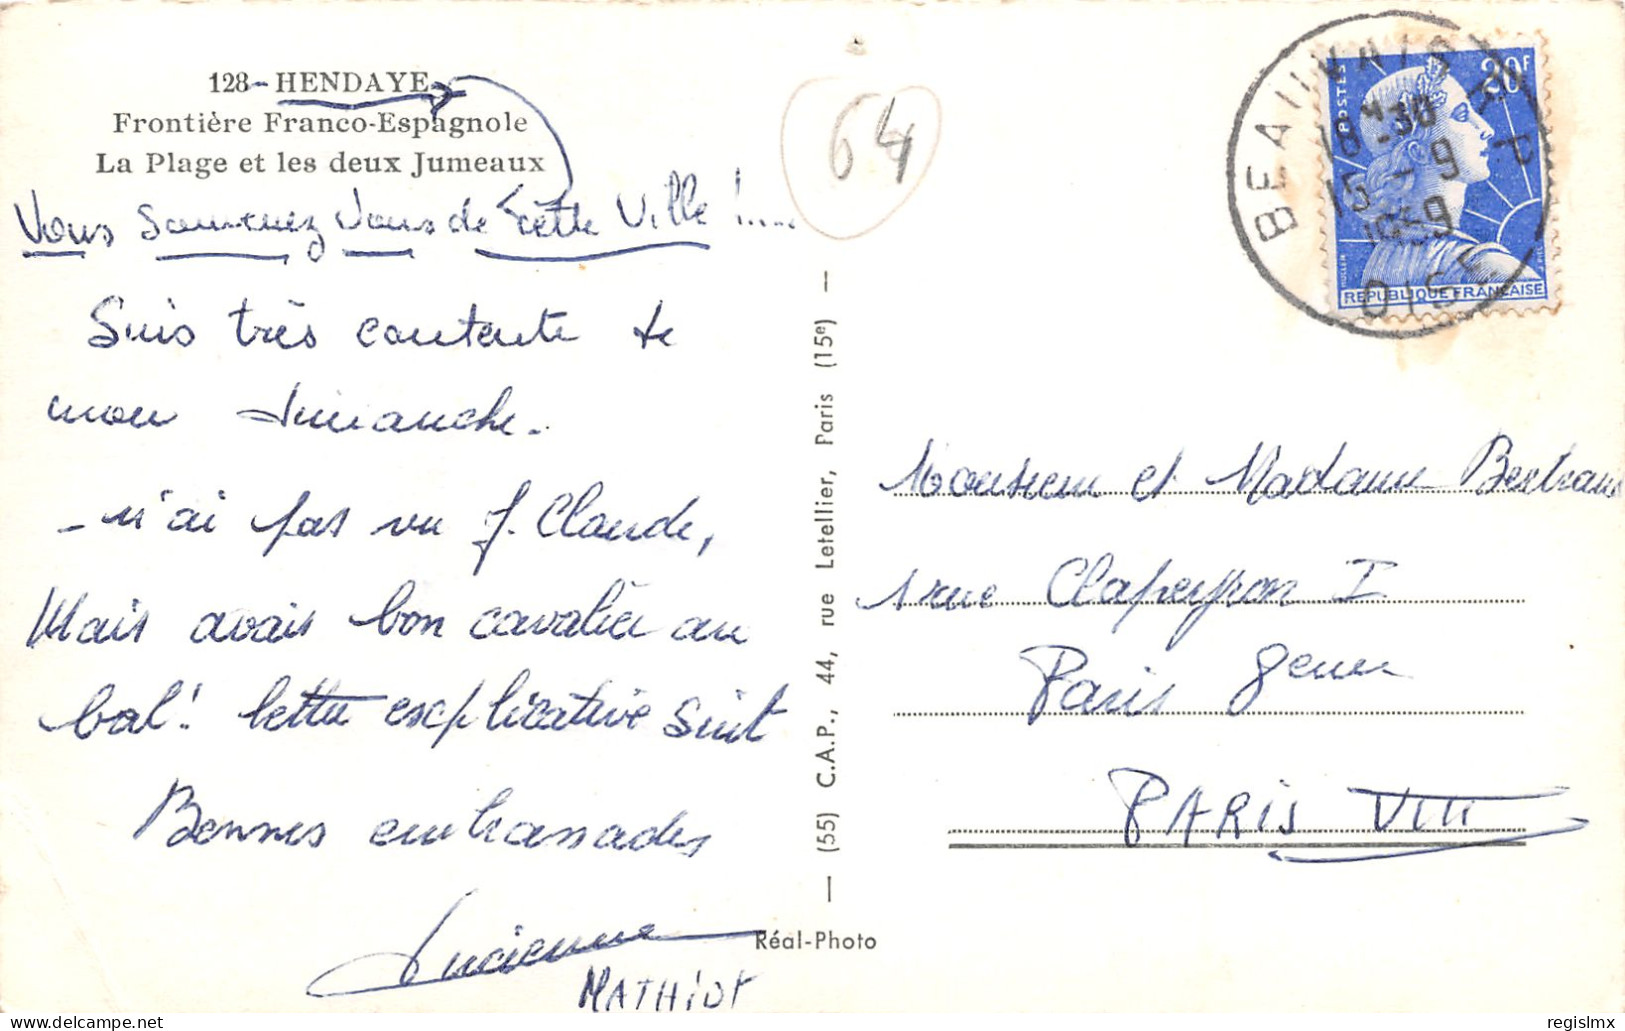 128 - HENDAYE
Frontière Franco-Espagnole
La Plage et les deux Jumeaux
Vous souvenez vous de cette Ville !.....
Suis très contente de
mon dimanche.
- n'ai pas vu J. Claude,
Mais avais bon cavalier au
bal! lettre explicative suit
Bonnes embrassades
Lucienne
MATHIOT
64
(55) C.A.P., 44, rue Letellier, Paris (15e)
Réal-Photo
BEAUVAIS R.P.
18 H 30
15 - 9
1959
OISE
POSTES
20F
MULLER
REPUBLIQUE FRANÇAISE
Monsieur et Madame Bertrand
1 rue Clapeyron I
Paris 8eme
PARIS VIII
delcampe.net
regislmx